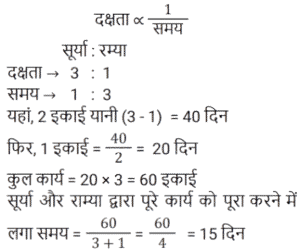 दक्षता ∝ 1/समय
सूर्या : रम्या
दक्षता → 3 : 1
समय → 1 : 3
यहां, 2 इकाई यानी (3 - 1) = 40 दिन
फिर, 1 इकाई = 40/2 = 20 दिन
कुल कार्य = 20 × 3 = 60 इकाई
सूर्या और राम्या द्वारा पूरे कार्य को पूरा करने में
लगा समय = 60/(3 + 1) = 60/4 = 15 दिन